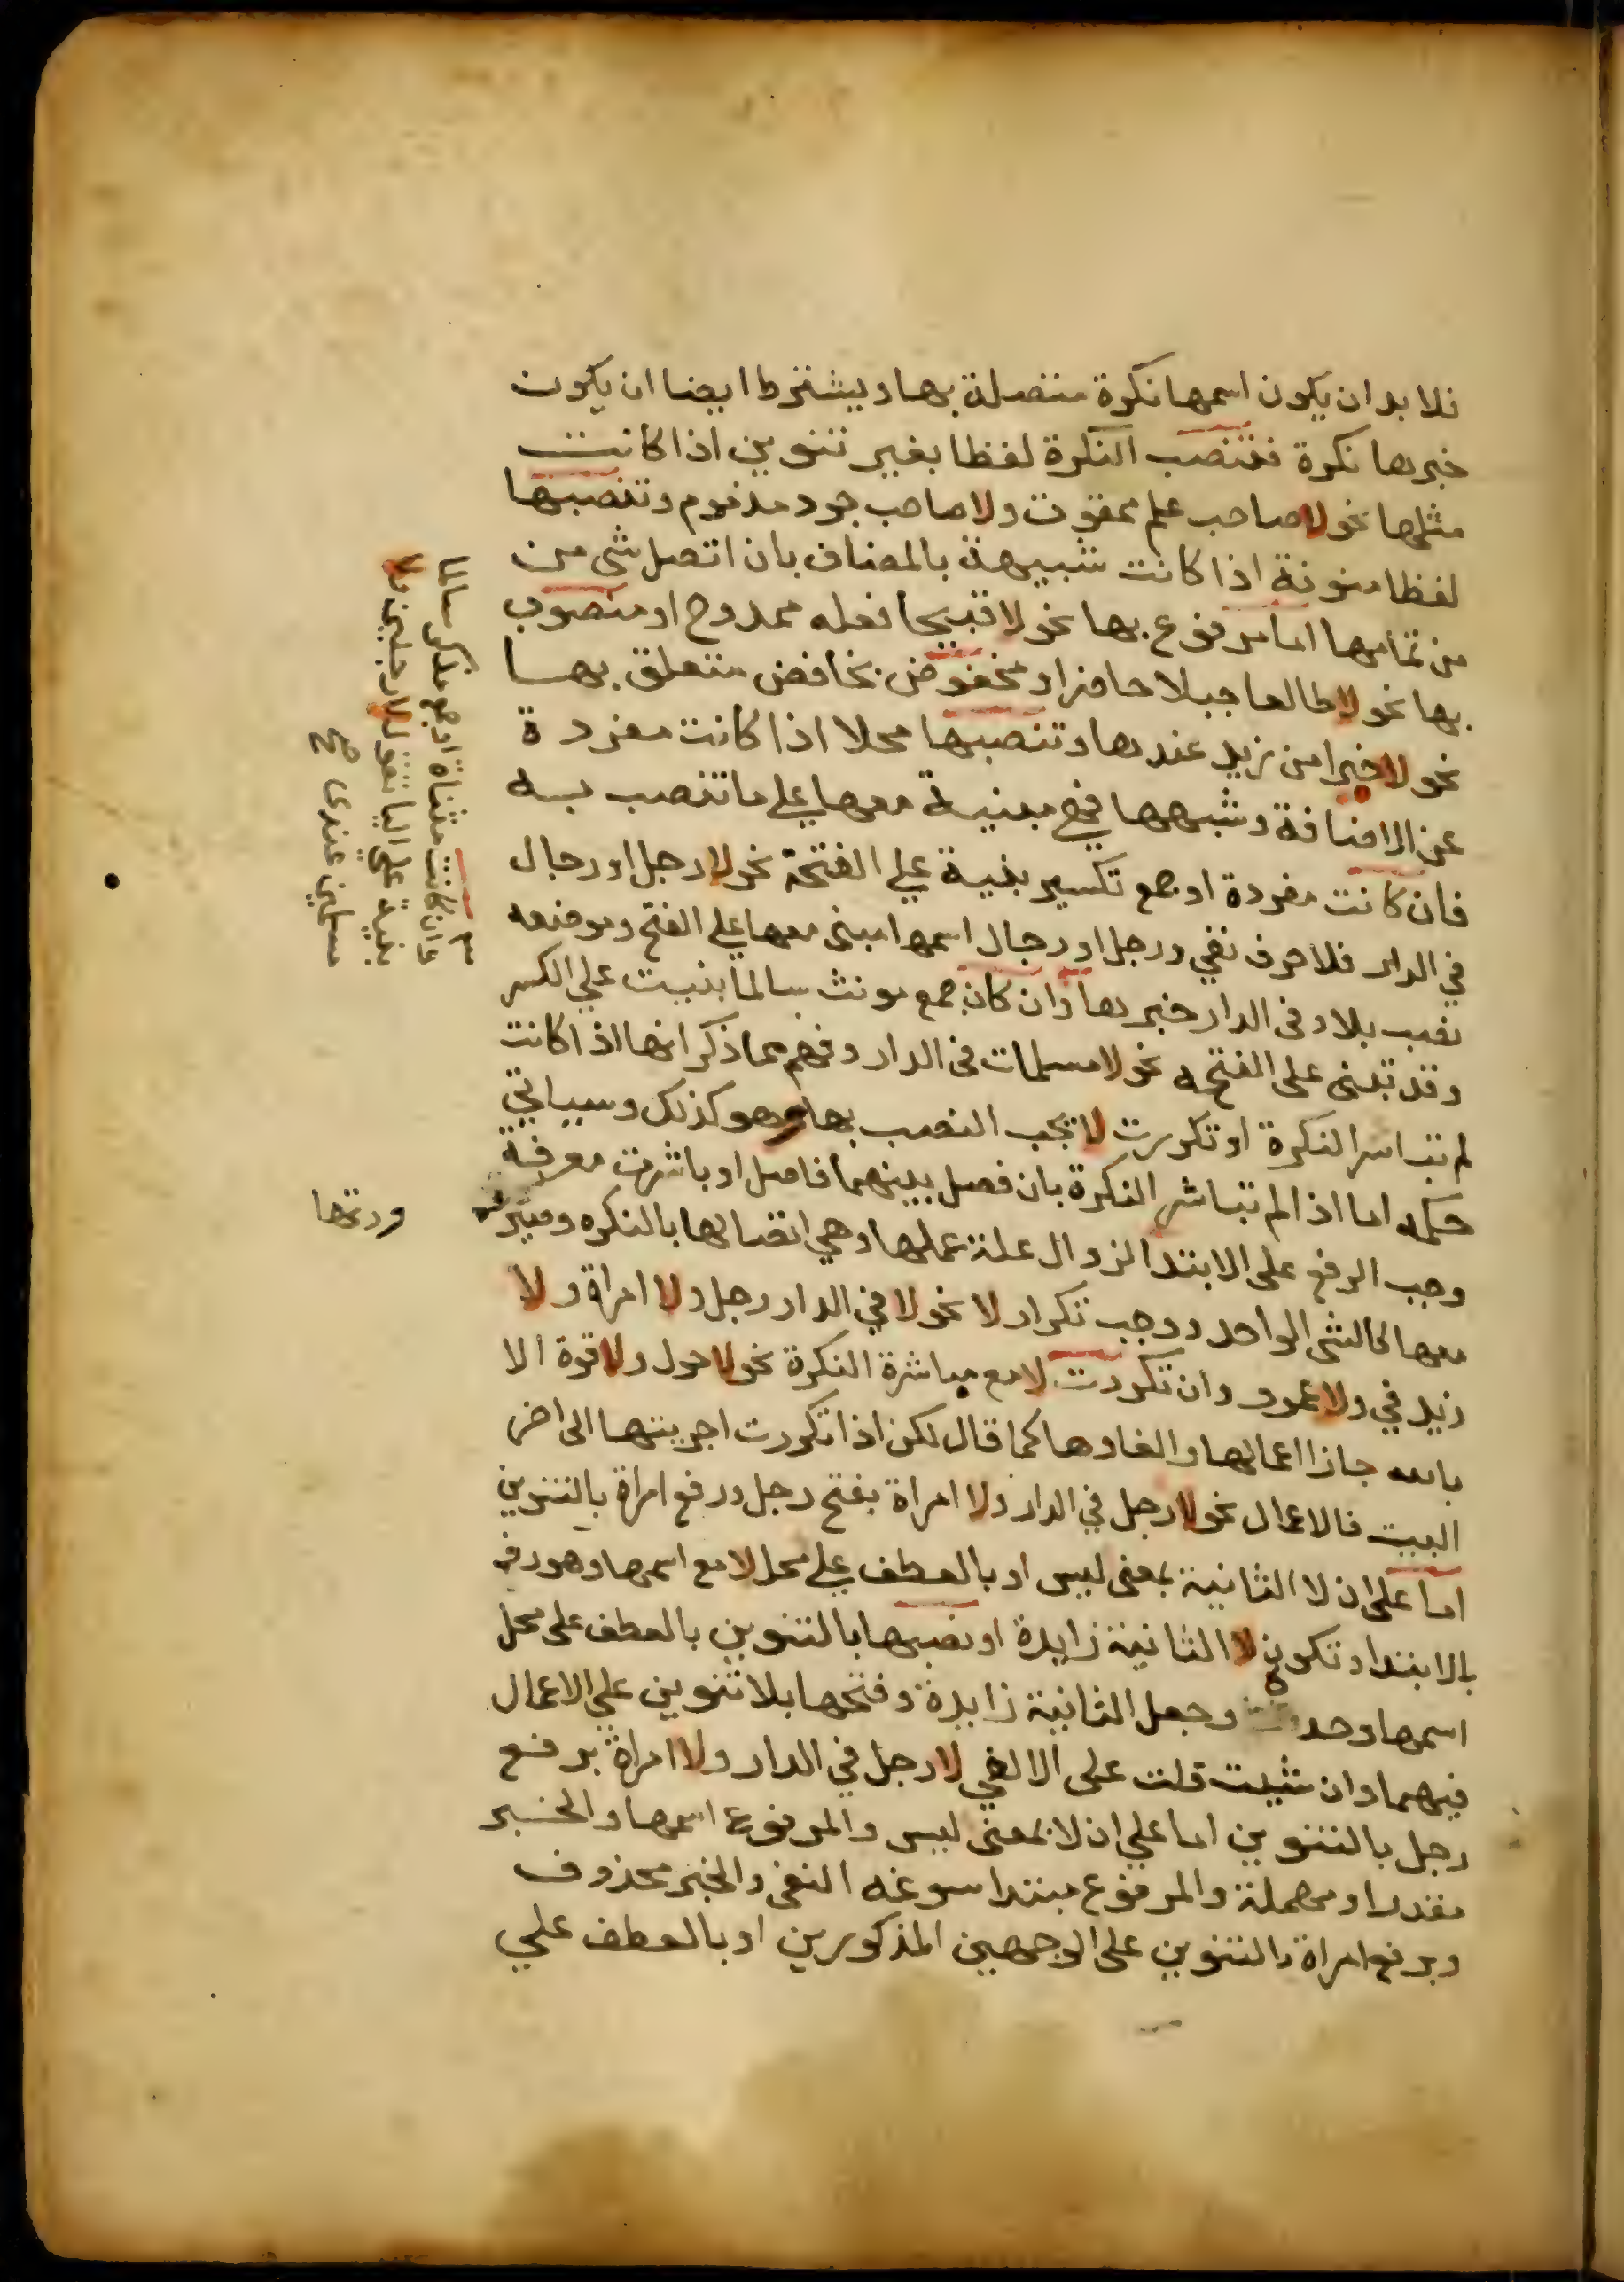 فلا بد ان يكون اسمها نكرة متصلة بها ويشترط ايضا ان يكون
خبرها نكرة فتنصب النكرة لفظا بغير تنوين اذا كانت
مثلها نحو لا صاحب علم ممقوت ولا صاحب جود مذموم وتنصبها
لفظا منونة اذا كانت شبيهة بالمضاف بان اتصل شي من
من تمامها اما مرفوع بها نحو لا قبيحا فعله ممدوح او منصوب
بها نحو لا طالعا جبلا حاضر او مخفوض بخافض متعلق بها
نحو لا خيرا من زيد عندها وتنصبها محلا اذا كانت مفردة
عن الاضافة وشبهها فهي مبنية معها علي ما تنصب به
فان كانت مفردة او جمع تكسير بنية علي الفتحة نحو لا رجل او رجال
في الدار فلا حرف نفي ورجل او رجال اسمها مبني معها علي الفتح وموضعه
نصب بلا وفي الدار خبرها وان كان جمع مونث سالما بنيت علي الكسر
وقد تبنى على الفتحه نحو لا مسلمات في الدار وفهم مما ذكر انها اذا كانت
لم تباشر النكرة او تكررت لا يجب النصب بها وهو كذلك وسياتي
حكمه اما اذا لم تباشر النكرة بان فصل بينهما فاصل او باشرت معرفة
وجب الرفع على الابتدا لزوال علة عملها وهي اتصالها بالنكره
معها كالشي الواحد ووجب تكرار لا نحو لا في الدار رجل ولا امراة ولا
زيد في ولا عمرو وان تكررت لا مع مباشرة النكرة نحو لا حول ولا قوة الا
بالله جاز اعمالها والغاوها كما قال لكن اذا تكررت اجريتها الى اخر
البيت فالاعمال نحو لا رجل في الدار ولا امراة بفتح رجل ورفع امراة بالتنوين
اما على ان لا الثانية بمعنى ليس او بالعطف علي محل لا مع اسمها وهو رفع
بالابتدا وتكون لا الثانية زايدة او نصبها بالتنوين بالعطف على محل
اسمها وحده وجعل الثانية زايدة وفتحها بلا تنوين على الاعمال
فيهما وان شيت قلت على الالغي لا رجل في الدار ولا امراة برفع
رجل بالتنوين اما علي ان لا بمعنى ليس والمرفوع اسمها والخبر
مقدرا ومهملة والمرفوع مبتدا سوغه النفي والخبر محذوف
وبرفع امراة بالتنوين على الوجهين المذكورين او بالعطف علي
وان كانت مثناة او جمع مذكر سالما
بنية على اليا نحو لا رجلين ولا
مسلمين عندى صح